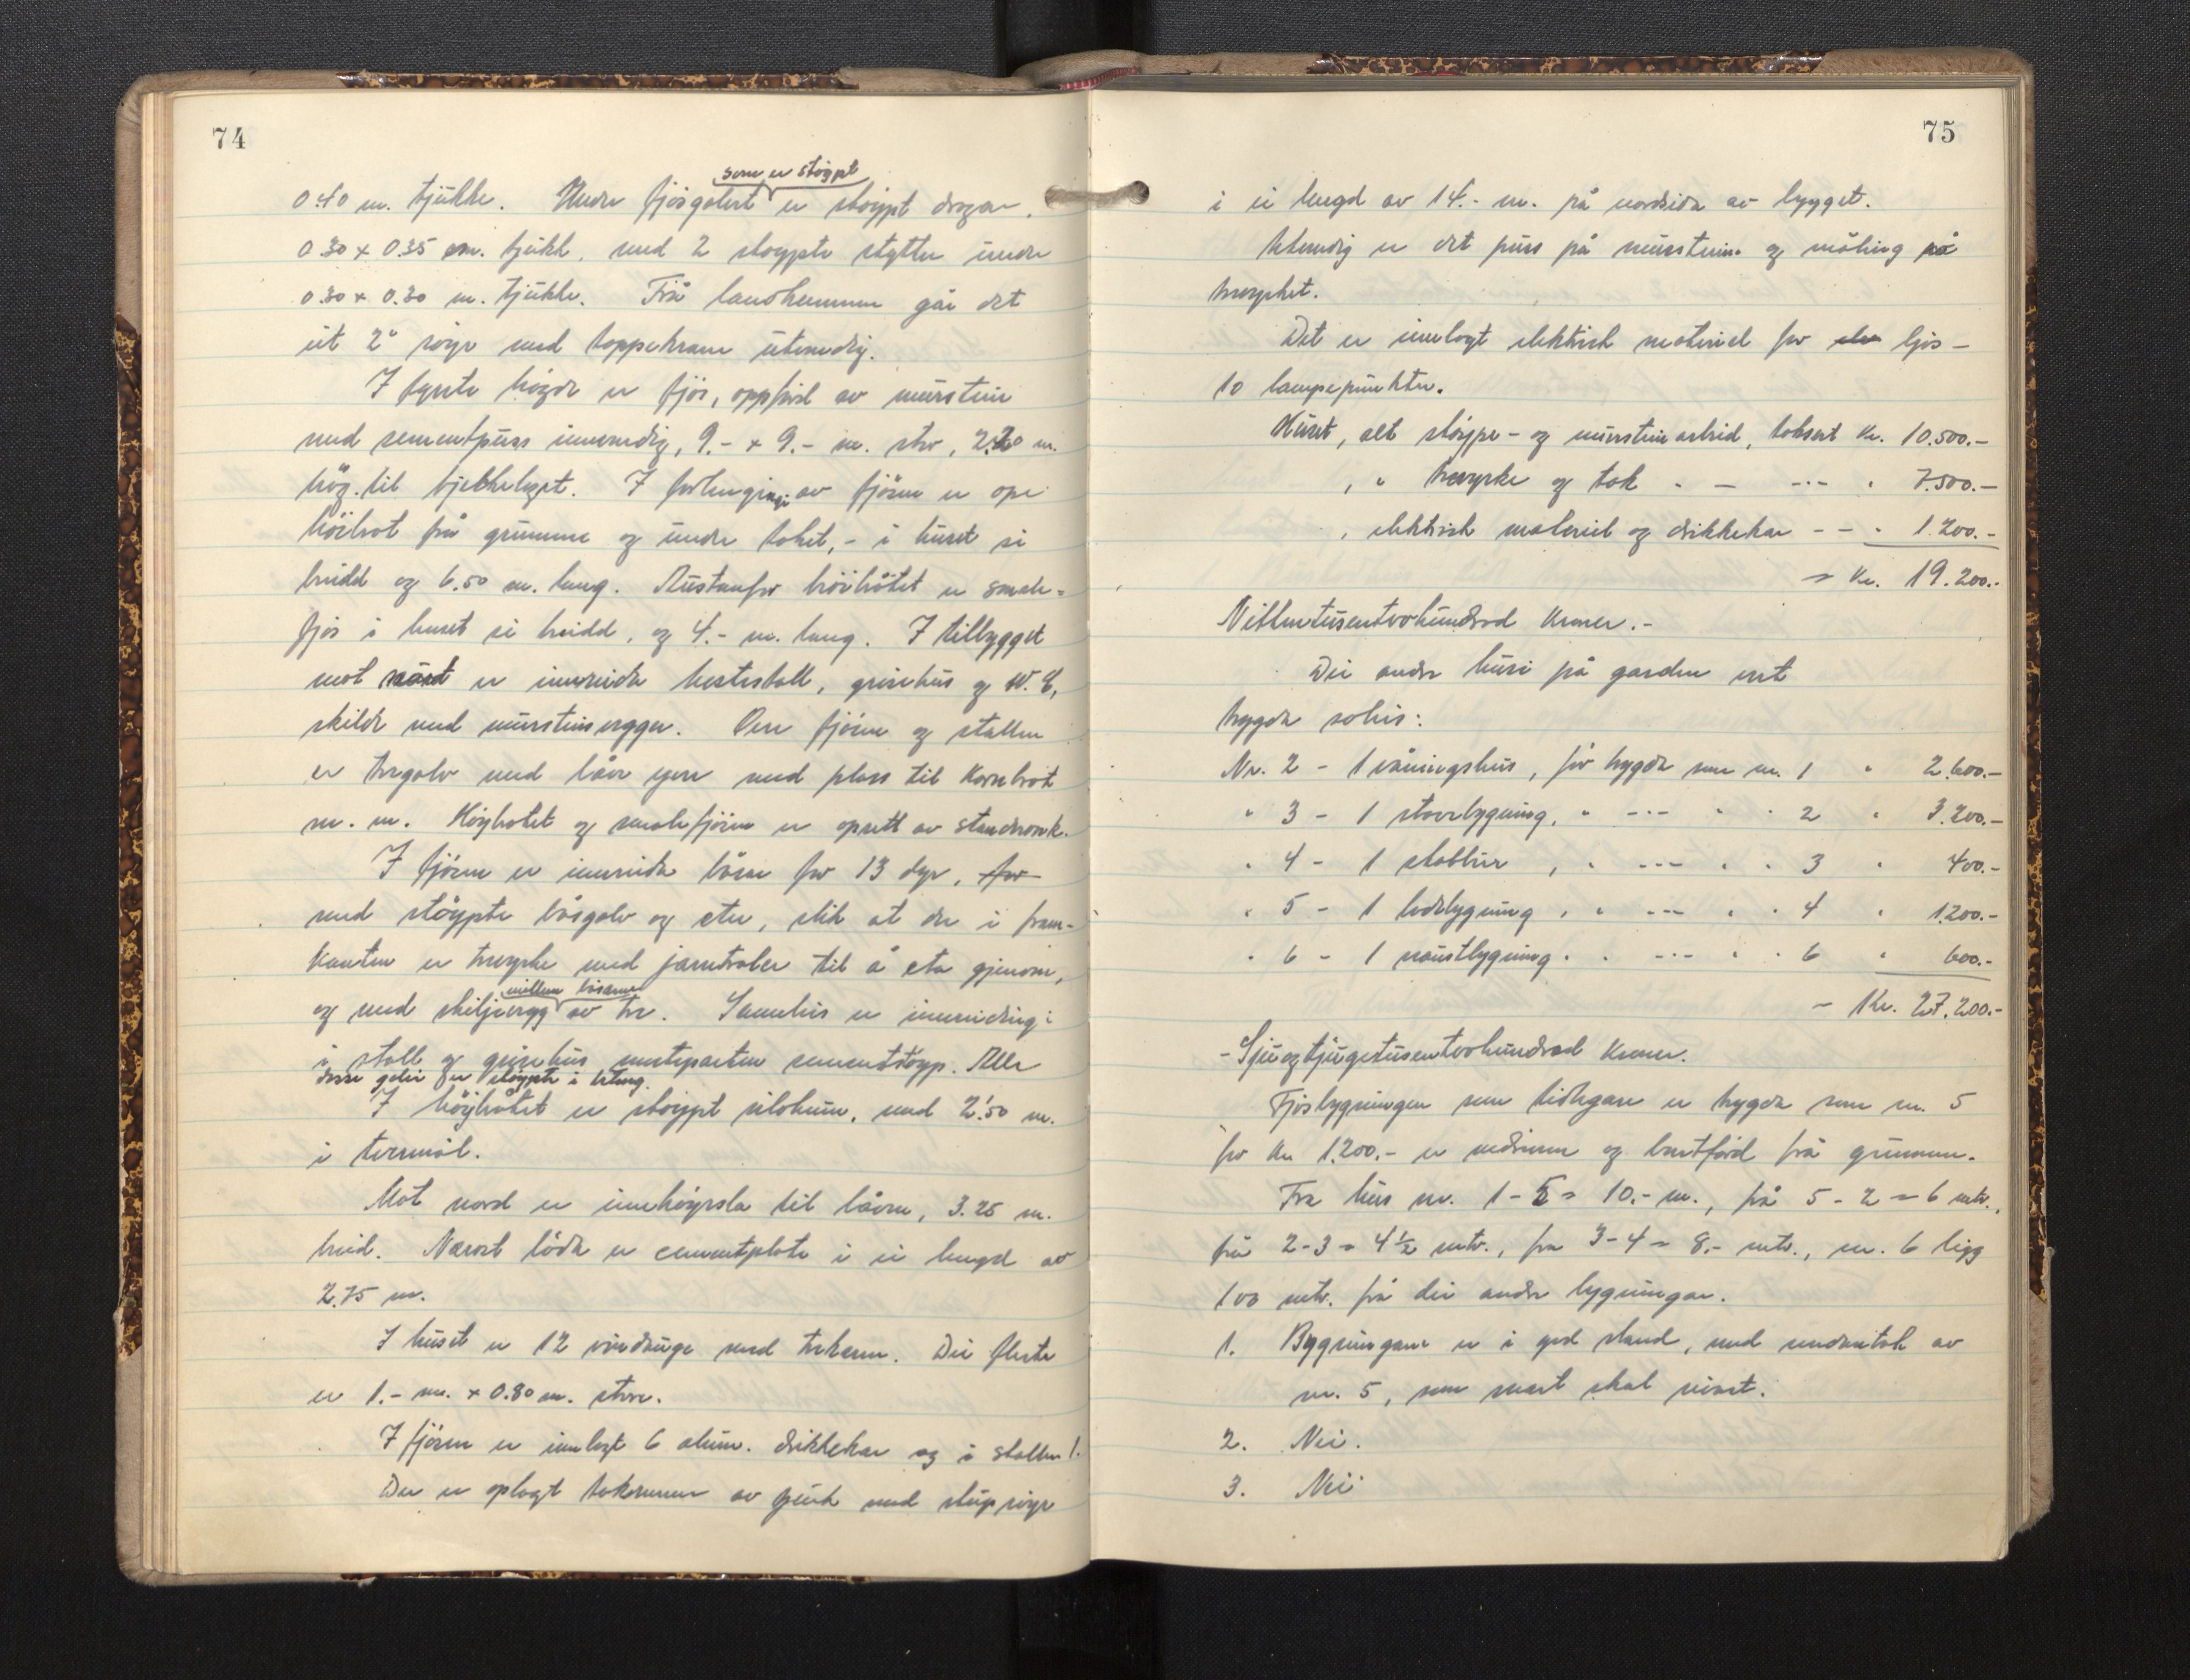 74
som er støypt
0.40 m. tjukke. Undre fjøsgolvet er støypt dragar,
0.30 x 0.35 m. tjukk, med 2 støypte stytter undre
0.30 x 0.30 m. tjukke. Frå landkummen går det
ut 2" røyr med tappekrane utvendig.
I fyrste høgde er fjøs, oppførd av murstein
med sementpuss innvendig, 9.- x 9.- m. stor, 2.20 m.
høg til bjelkelaget. I forlengingi av fjøsen er ope
høibrot frå grunnen og undre taket, - i huset si
breidd og 6.50 m. lang. Austanfor høibrotet er smale-
fjøs i huset si breidd, og 4.- m. lang. I tilbygget
mot nord er innreidd hestestall, grisehus og W.C,
skilde med mursteinsveggar. Over fjøsen og stallen
er tregolv med låve yver med plass til kornbrot
m. m. Høybrotet og smalefjøsen er opsett av standverk.
I fjøsen er innreidde båsar for 13 dyr, for
med støypte båsgolv og etar, slik at der i fram-
kanten er treverke med jarntralar til å eta gjenom,
millom båsane
og med skiljevegg av tre. Samleis er innreidingi
i stall og grisehus mesteparten sementstøyp. Alle
desse golvi er støypte i betong.
I høybrotet er støypt silokum, med 2.50 m.
i tvermål.
Mot nord er innkøyrsla til låven, 3.25 m.
breid. Nærast løda er cementplate i ei lengd av
2.75 m.
I huset er 12 vindauge med trekarm. Dei fleste
er 1.- m. x 0.80 m. store.
I fjøsen er innlagt 6 alum. drikkekar og i stallen 1.
Der er oplagt takrennur av zink med stuprøyr
75
i ei lengd av 14.- m. på nordsida av bygget.
Utvendig er det puss på murstein og måling på
treverket.
Det er innlagt elektrisk materiel for ljos -
10 lampepunkter.
Huset, alt støype- og mursteinarbeid, taksert kr. 10.500.-
, " treverke og tak " — -"- " 7.500.-
, elektrisk materiel og drikkekar - - " 1.200.-
= Kr. 19.200.-
Nittentusentvohundrad Kroner.-
Dei andre husi på garden vert
trygda solis:
Nr. 2 - 1 våningshus, før trygda som nr. 1 " 2.600.-
" 3 - 1 stovebygning, " -"- " " 2 " 3.200.-
" 4 - 1 stabbur , " -"- " " 3 " 400.-
" 5 - 1 lødebygning , " -"- " " 4 " 1.200.-
" 6 - 1 naustbygning " " -"- " " 6 " 600.-
- Kr. 27.200.-
- Sjuogtjugetusentvohundrad Kroner.
Fjøsbygningen som tidlegare er trygda som nr. 5
for kr 1.200.- er nedriven og burtførd frå grunnen.
Fra hus nr. 1 - 5 = 10.- m., frå 5 - 2 = 6 mtr.,
frå 2-3 = 4 ½ mtr., fra 3-4 = 8.- mtr., nr. 6 ligg
100 mtr. frå dei andre bygningar.
1. Bygningane er i god stand, med undantak av
nr. 5, som snart skal rivast.
2. Nei.
3. Nei